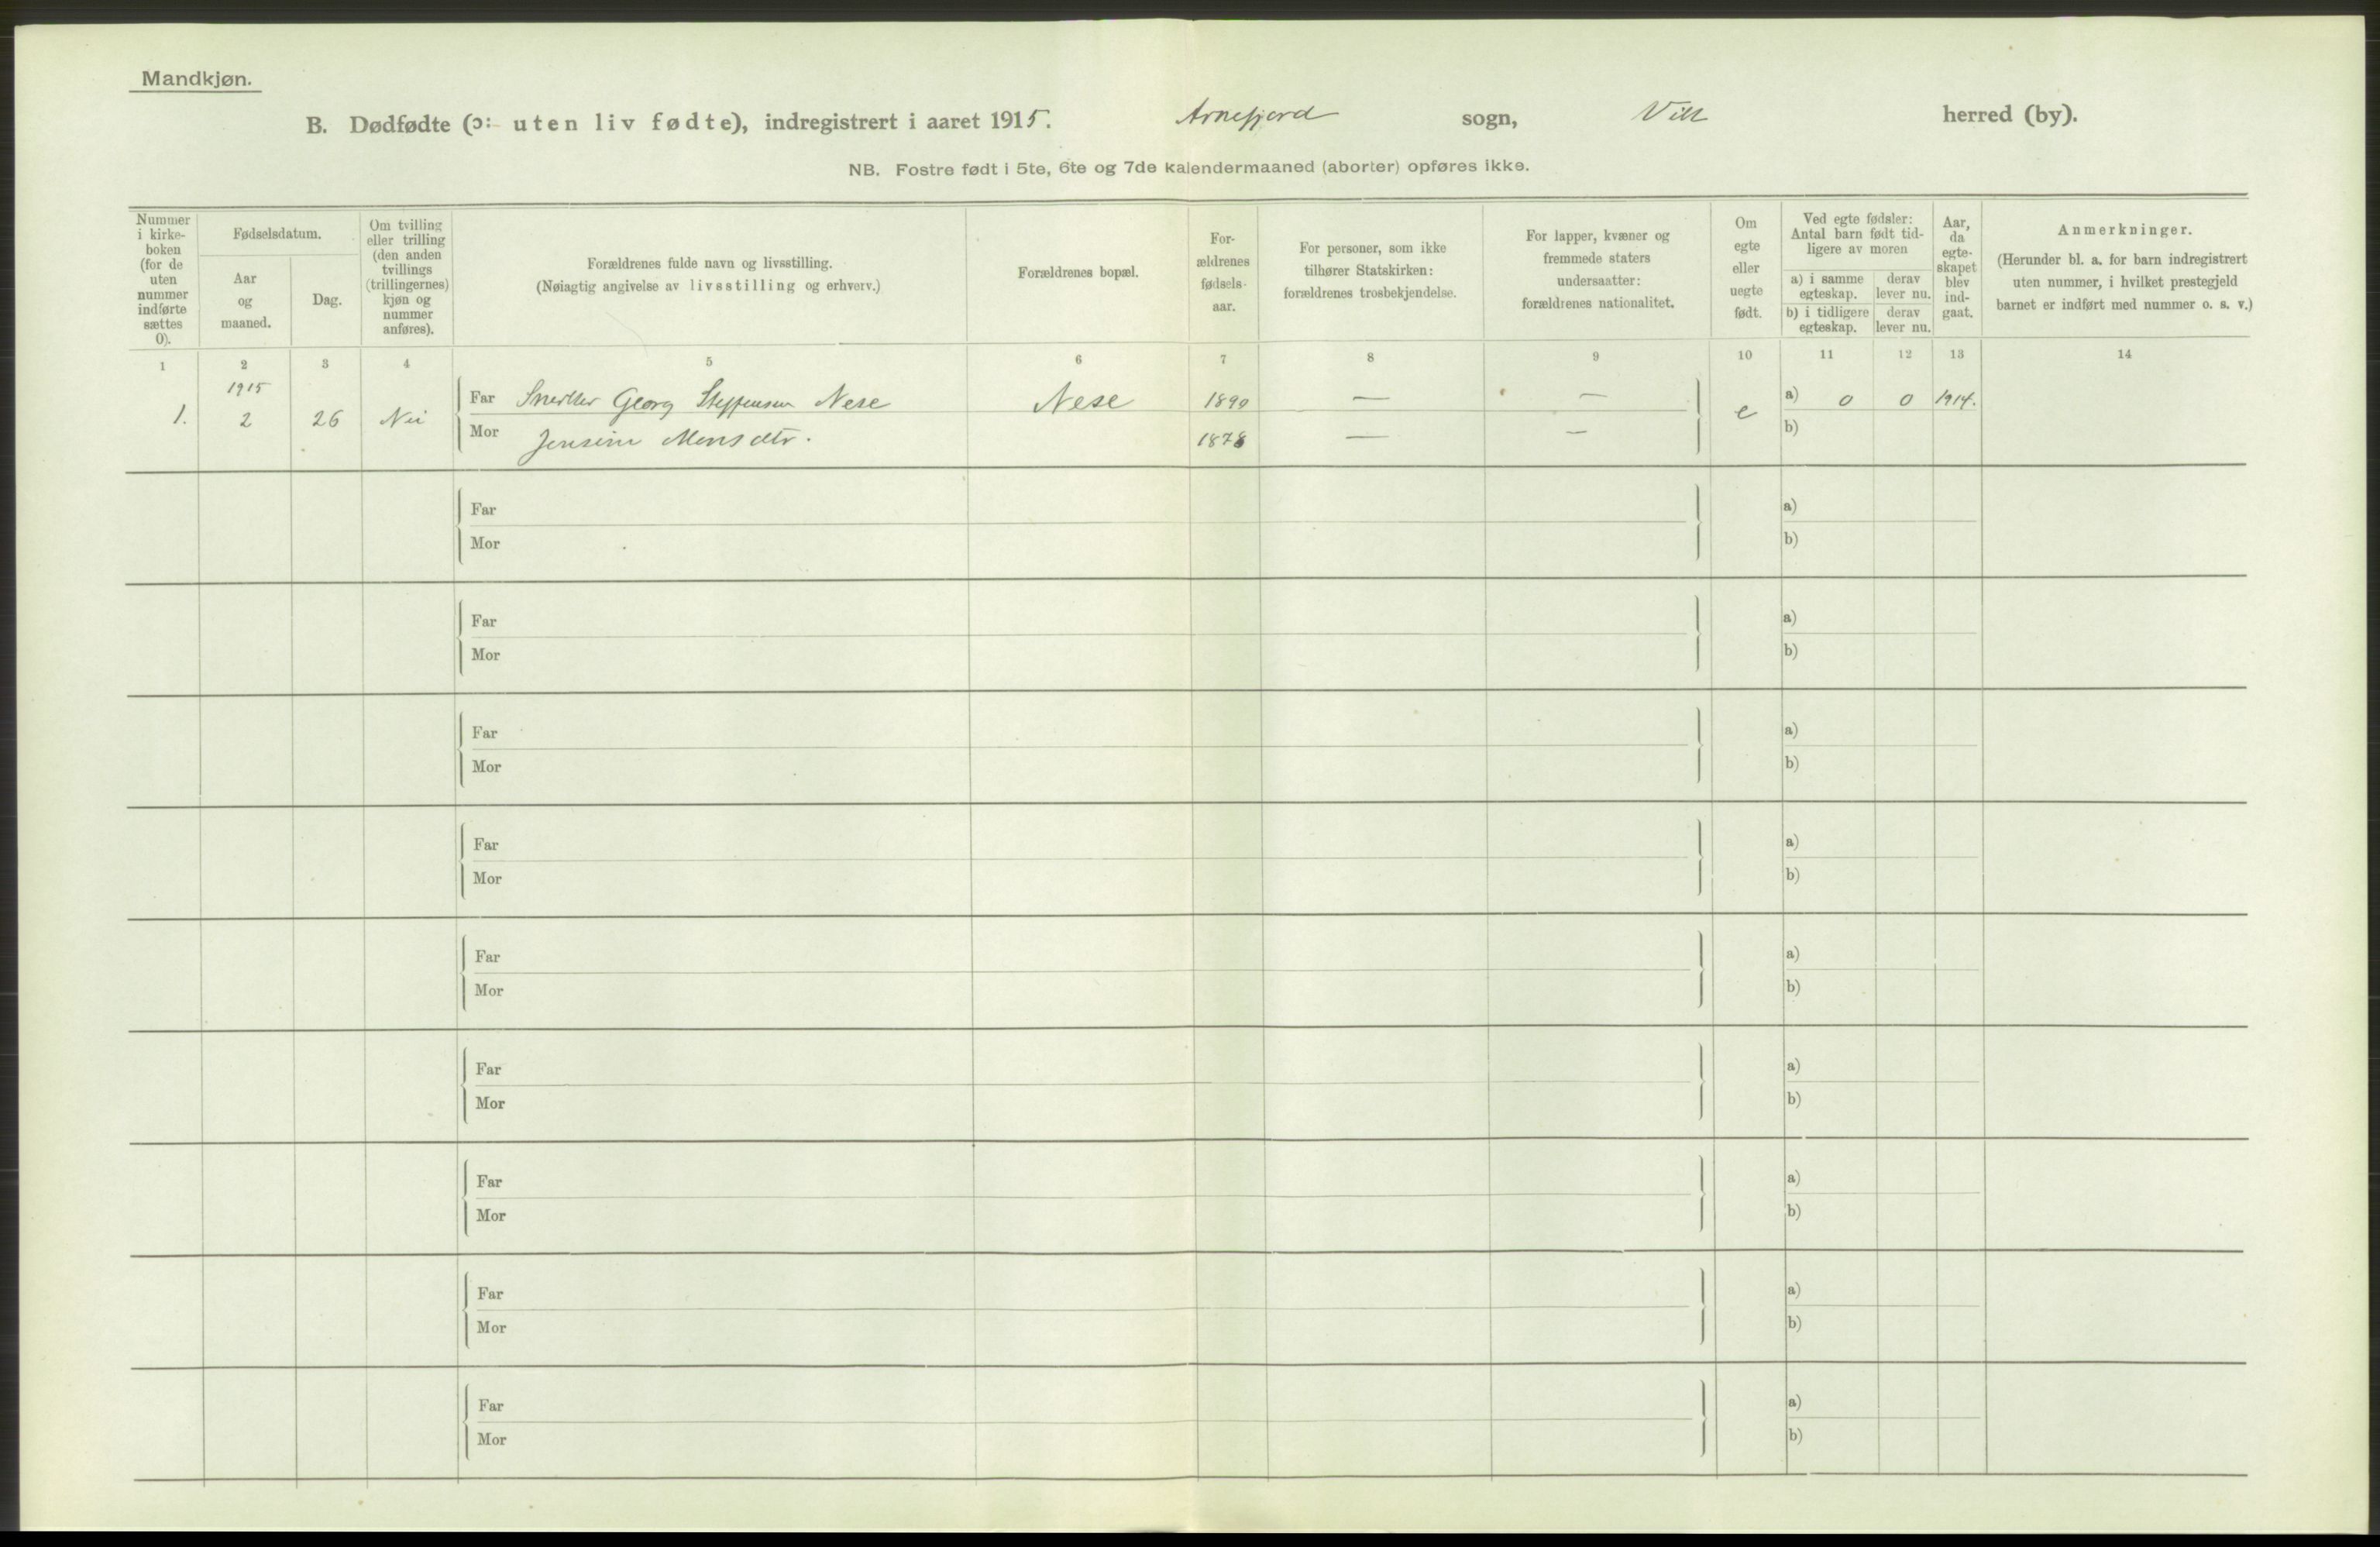 Mandkjøn.
B. Dødfødte (ɔ: uten liv fødte), indregistrert i aaret 1915. Arnefjord sogn, Vik herred (by).
NB. Fostre født i 5te, 6te og 7de kalendermaaned (aborter) opføres ikke.
Nummer
i kirke-
boken
(for de
uten
nummer
indførte
sættes
0).
Fødselsdatum.
Aar
og
maaned.
Dag.
Om tvilling
eller trilling
(den anden
tvillings
(trillingernes)
kjøn og
nummer
anføres).
Forældrenes fulde navn og livsstilling.
(Nøiagtig angivelse av livsstilling og erhverv.)
Forældrenes bopæl.
For-
ældrenes
fødsels-
aar.
For personer, som ikke
tilhører Statskirken:
forældrenes trosbekjendelse.
For lapper, kvæner og
fremmede staters
undersaatter:
forældrenes nationalitet.
Om
egte
eller
uegte
født.
Ved egte fødsler:
Antal barn født tid-
ligere av moren
a) i samme
egteskap.
derav
lever nu.
b) i tidligere
egteskap.
derav
lever nu.
Aar,
da
egte-
skapet
blev
ind-
gaat.
Anmerkninger.
(Herunder bl. a. for barn indregistrert
uten nummer, i hvilket prestegjeld
barnet er indført med nummer o. s. v.)
1 2 3 4 5 6 7 8 9 10 11 12 13 14
1915
1. 2 26 Nei
Far Snedker Georg Steffensen Nese Nese 1890 — — e a) 0 0 1914.
Mor Jensine Monsdtr. 1878 — — b)
Far a)
Mor b)
Far a)
Mor b)
Far a)
Mor b)
Far a)
Mor b)
Far a)
Mor b)
Far a)
Mor b)
Far a)
Mor b)
Far a)
Mor b)
Far a)
Mor b)